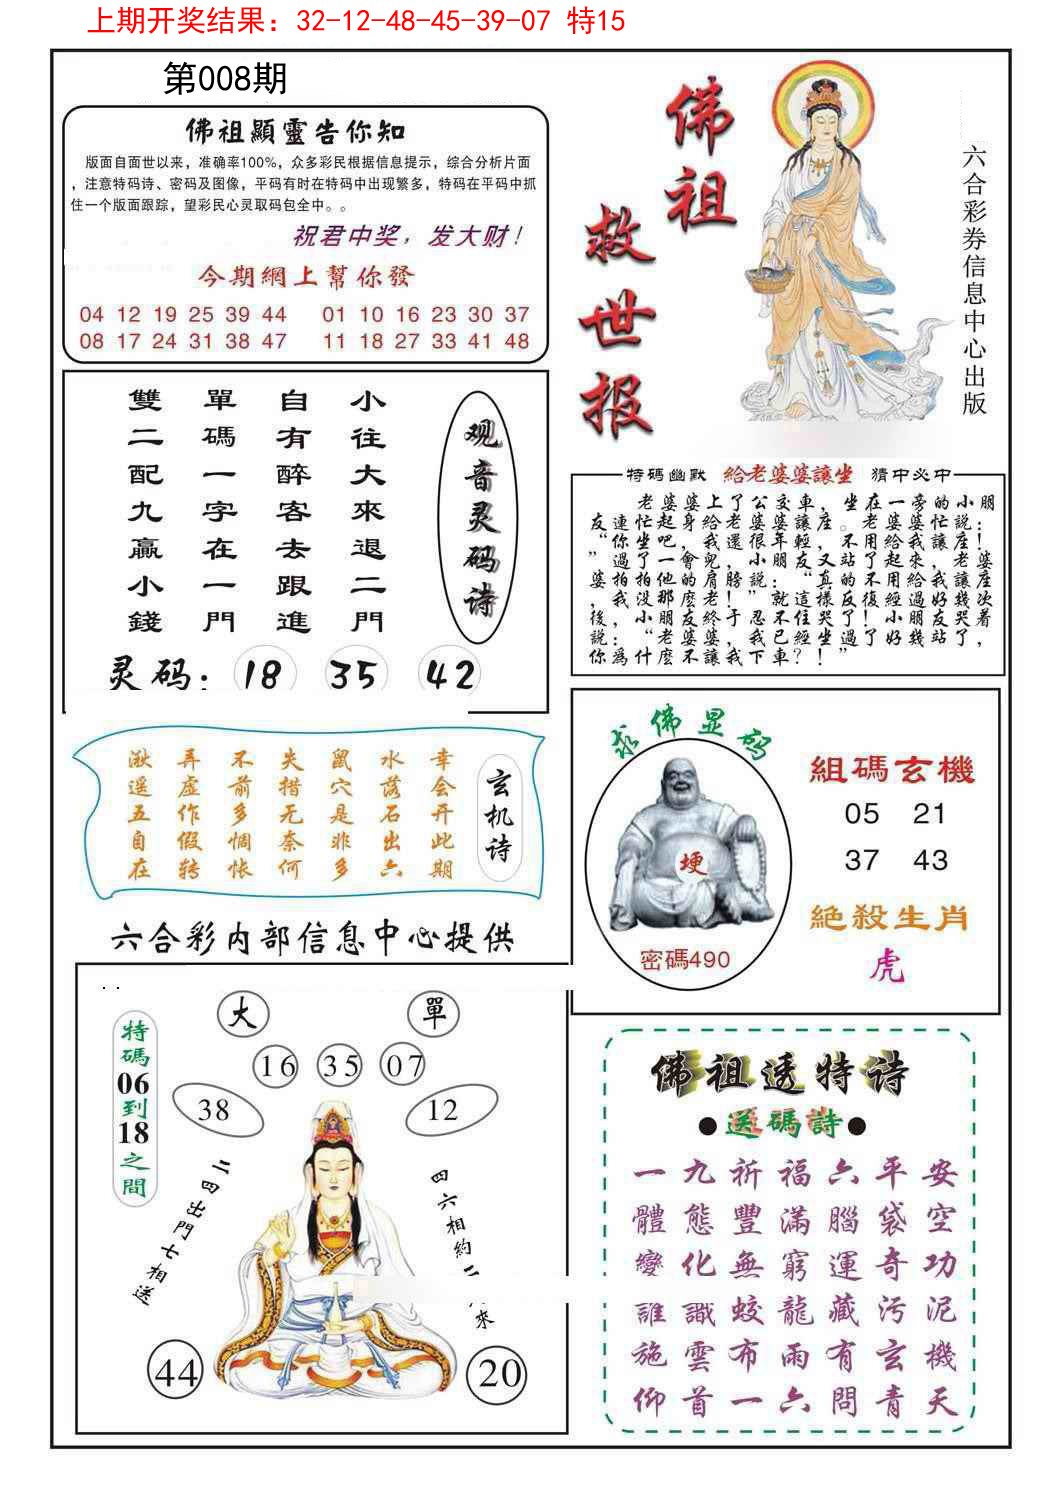 上期开奖结果：32-12-48-45-39-07 特15
第008期
佛祖顯靈告你知
版面自面世以来，准确率100%，众多彩民根据信息提示，综合分析片面
，注意特码诗、密码及图像，平码有时在特码中出现繁多，特码在平码中抓
住一个版面跟踪，望彩民心灵取码包全中。。
祝君中奖，发大财！
今期網上幫你發
04 12 19 25 39 44 01 10 16 23 30 37
08 17 24 31 38 47 11 18 27 33 41 48
佛祖
救世报
六合彩券信息中心出版
观音灵码诗
小往大來退二門
自有醉客去跟進
單碼一字在一門
雙二配九贏小錢
灵码：18 35 42
特碼幽默 給老婆婆讓坐 猜中必中
老婆婆上了公交車，坐在一旁的小朋
友連忙起身給老婆婆讓座。老婆婆忙説：
“你坐吧，我還很年輕，不用給我讓座！
”過了一會兒，小朋友又站了起來，老婆
婆拍拍他的肩膀説：“真的不用給我讓座
，我没那麽老！”就這樣反復經過好幾次
後，小朋友終于忍不住哭了！小朋友哭着
説：“老婆婆，我已經坐過了好幾站了，
你為什麽不讓我下車？！”
玄机诗
幸会开此期
水落石出六
鼠穴是非多
失措无奈何
不前多惆怅
弄虚作假转
遥五自在
求佛显码
埂
密碼490
組碼玄機
05 21
37 43
絶殺生肖
虎
六合彩内部信息中心提供
特碼06到18之間
大 單
16 35 07
38 12
二四出門七相送
四六相約二
來
44 20
佛祖透特诗
●送碼詩●
一九祈福六平安
體態豐滿腦袋空
變化無窮運奇功
誰識蛟龍藏污泥
施雲布雨有玄機
仰首一六問青天